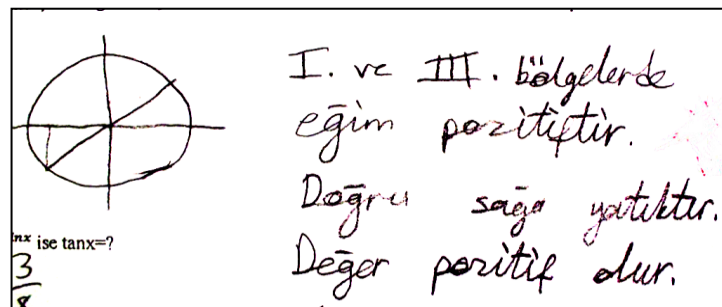 I. ve III. bölgelerde
eğim pozitiftir.
Doğru sağa yatıktır.
Değer pozitif olur.
ise tanx=?
3
8